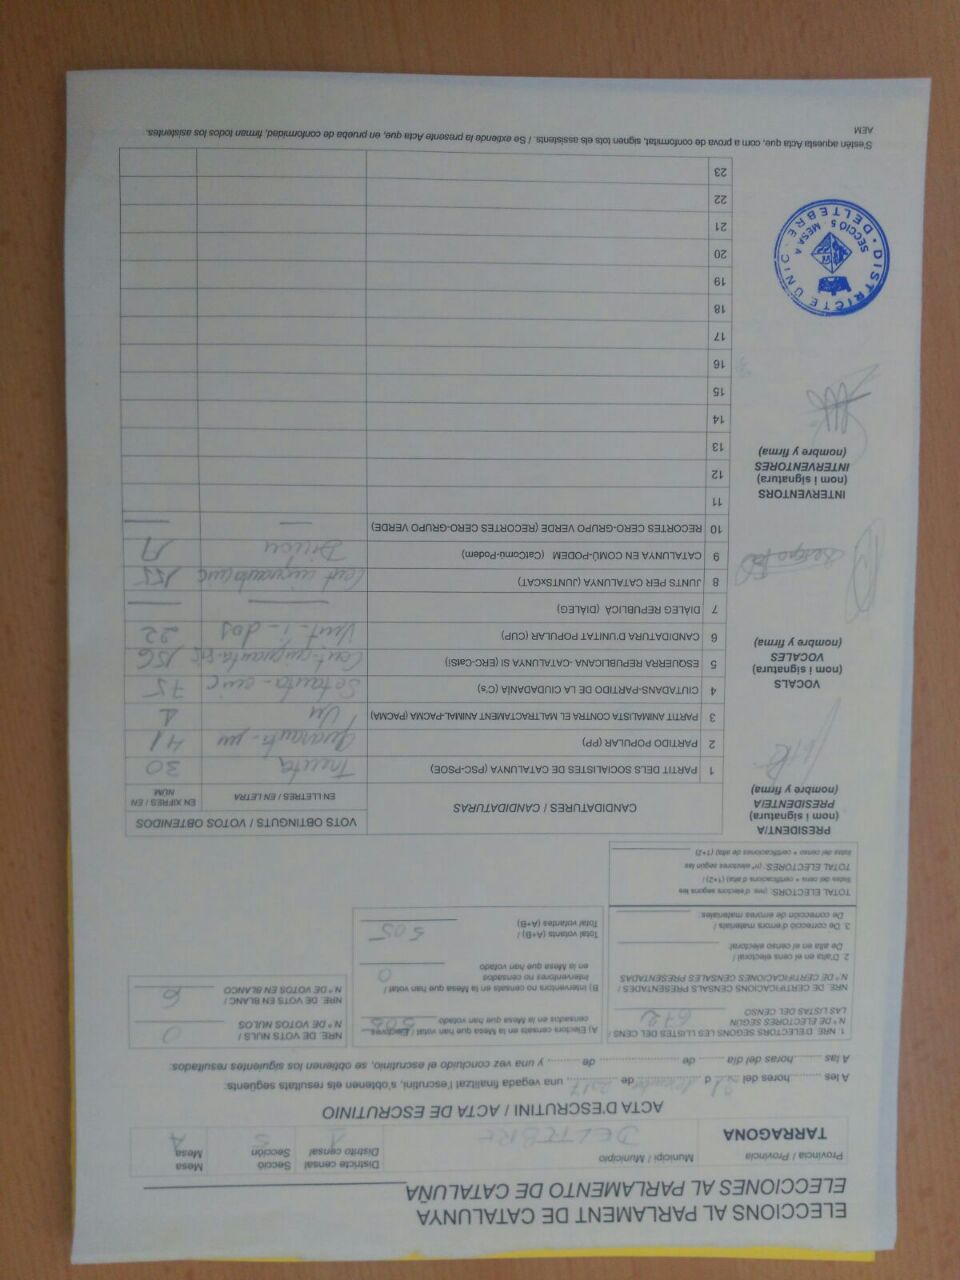 ELECCIONS AL PARLAMENT DE CATALUNYA
ELECCIONES AL PARLAMENTO DE CATALUÑA
Província / Provincia
TARRAGONA
Municipi / Municipio
DELTEBRE
Districte censal
Distrito censal
1
Secció
Sección
5
Mesa
Mesa
A
ACTA D'ESCRUTINI / ACTA DE ESCRUTINIO
A les ......... hores del 21 d desembre de 2017 una vegada finalitzat l'escrutini, s'obtenen els resultats següents:
A las ......... horas del día ......... de ......... de ......... y una vez concluido el escrutinio, se obtienen los siguientes resultados:
1 NRE. D'ELECTORS SEGONS LES LLISTES DEL CENS /
Nº DE ELECTORES SEGÚN
LAS LISTAS DEL CENSO 672
NRE. DE CERTIFICACIONS CENSALS PRESENTADES /
Nº DE CERTIFICACIONES CENSALES PRESENTADAS
2. D'alta en el cens electoral /
De alta en el censo electoral:
3. De correcció d'errors materials /
De corrección de errores materiales:
TOTAL ELECTORS: (nre. d'electors segons les
llistes del cens + certificacions d'alta) (1+2) /
TOTAL ELECTORES: (nº electores según las
listas del censo + certificaciones de alta) (1+2)
A) Electors censats en la Mesa que han votat / Electores
censados en la Mesa que han votado 505
B) Interventors no censats en la Mesa que han votat /
Interventores no censados
en la Mesa que han votado 0
Total votants (A+B) /
Total votantes (A+B) 505
NRE. DE VOTS NULS /
Nº DE VOTOS NULOS 0
NRE. DE VOTS EN BLANC /
Nº DE VOTOS EN BLANCO 6
PRESIDENT/A
(nom i signatura)
PRESIDENTE/A
(nombre y firma)
VOCALS
(nom i signatura)
VOCALES
(nombre y firma)
INTERVENTORS
(nom i signatura)
INTERVENTORES
(nombre y firma)
CANDIDATURES / CANDIDATURAS
VOTS OBTINGUTS / VOTOS OBTENIDOS
EN LLETRES / EN LETRA
EN XIFRES / EN NÚM
1 PARTIT DELS SOCIALISTES DE CATALUNYA (PSC-PSOE) Trenta 30
2 PARTIDO POPULAR (PP) Quaranta-un 41
3 PARTIT ANIMALISTA CONTRA EL MALTRACTAMENT ANIMAL-PACMA (PACMA) Un 1
4 CIUTADANS-PARTIDO DE LA CIUDADANÍA (C's) Setanta-cinc 75
5 ESQUERRA REPUBLICANA -CATALUNYA SÍ (ERC-CatSí) Cent-cinquanta-sis 156
6 CANDIDATURA D'UNITAT POPULAR (CUP) Vint-i-dos 22
7 DIÀLEG REPUBLICÀ (DIÀLEG) — —
8 JUNTS PER CATALUNYA (JUNTSxCAT) Cent cinquanta cinc 155
9 CATALUNYA EN COMÚ-PODEM (CatComú-Podem)
10 RECORTES CERO-GRUPO VERDE (RECORTES CERO-GRUPO VERDE) — —
11
12
13
14
15
16
17
18
19
20
21
22
23
DISTRICTE ÚNIC
SECCIÓ 5 MESA A
· DELTEBRE ·
S'estén aquesta Acta que, com a prova de conformitat, signen tots els assistents. / Se extiende la presente Acta que, en prueba de conformidad, firman todos los asistentes.
AEM